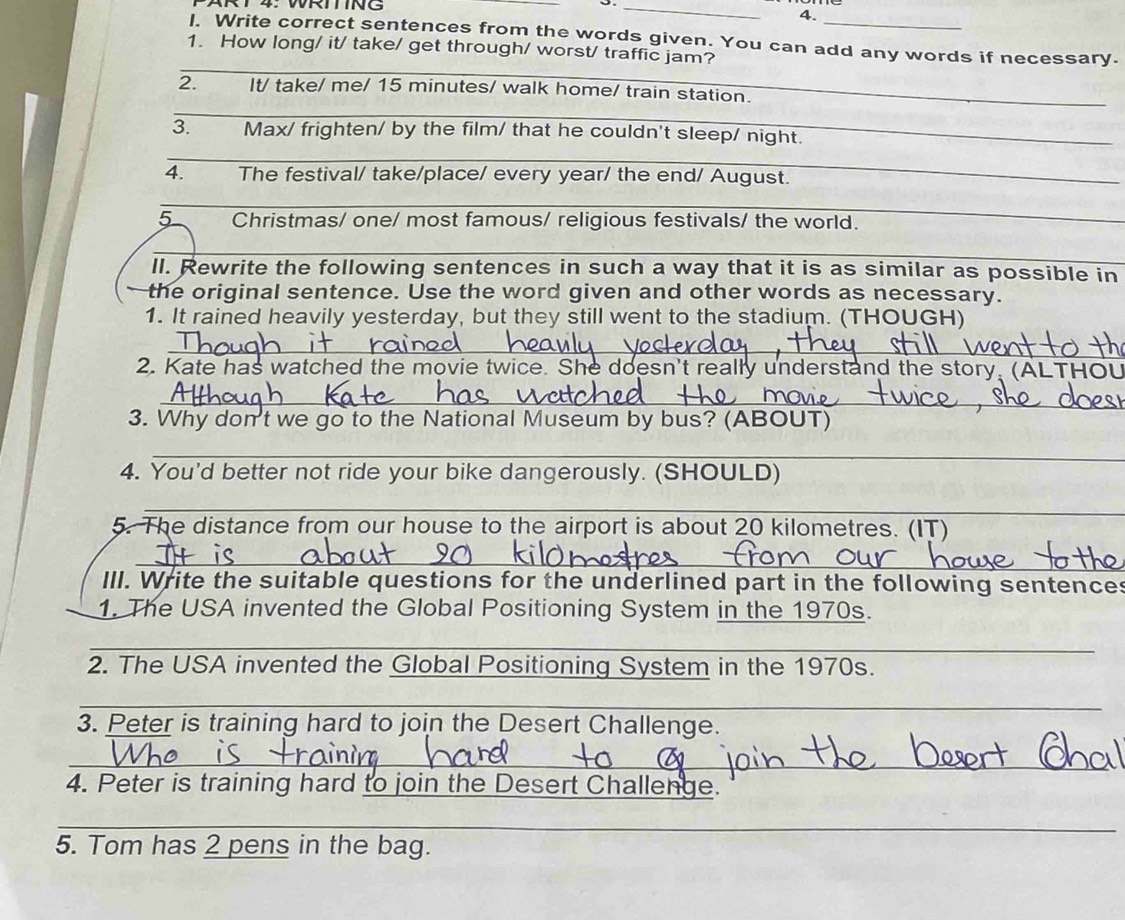 PART 4: WRITING
3.
4.
I. Write correct sentences from the words given. You can add any words if necessary.
1. How long/ it/ take/ get through/ worst/ traffic jam?
2. It/ take/ me/ 15 minutes/ walk home/ train station.
3. Max/ frighten/ by the film/ that he couldn't sleep/ night.
4. The festival/ take/place/ every year/ the end/ August.
5 Christmas/ one/ most famous/ religious festivals/ the world.
II. Rewrite the following sentences in such a way that it is as similar as possible in
the original sentence. Use the word given and other words as necessary.
1. It rained heavily yesterday, but they still went to the stadium. (THOUGH)
Though it rained heavily yesterday, they still went to th
2. Kate has watched the movie twice. She doesn't really understand the story. (ALTHOU
Although Kate has watched the movie twice, she does
3. Why don't we go to the National Museum by bus? (ABOUT)
4. You'd better not ride your bike dangerously. (SHOULD)
5. The distance from our house to the airport is about 20 kilometres. (IT)
It is about 20 kilometres from our house to the
III. Write the suitable questions for the underlined part in the following sentences
1. The USA invented the Global Positioning System in the 1970s.
2. The USA invented the Global Positioning System in the 1970s.
3. Peter is training hard to join the Desert Challenge.
Who is training hard to join the Desert Chal
4. Peter is training hard to join the Desert Challenge.
5. Tom has 2 pens in the bag.